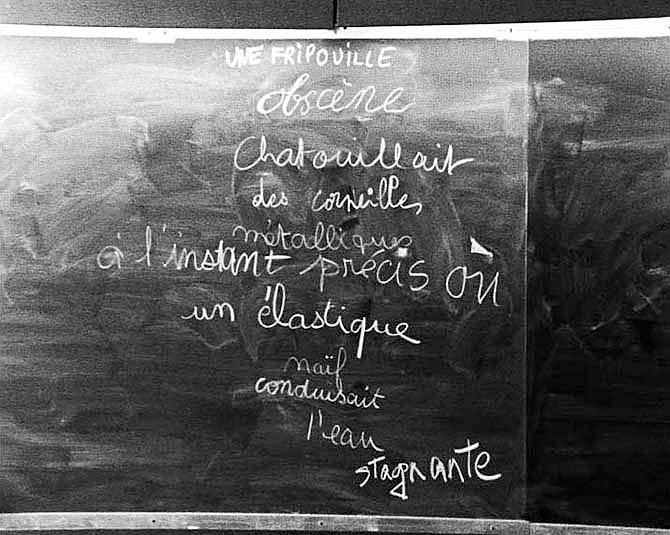 UNE FRIPOUILLE
obscène
Chatouillait
des corneilles
métalliques
à l'instant précis où
un élastique
naïf
conduisait
l'eau
stagnante